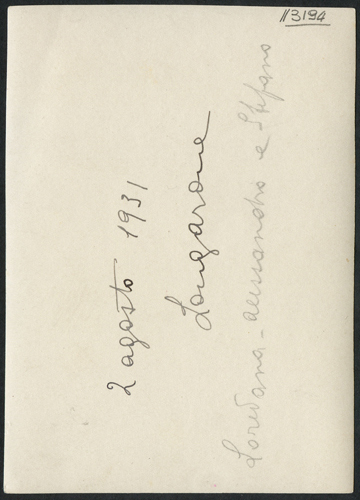 113194
2 agosto 1931
Longarone
Loredana - alessandro e Stefano